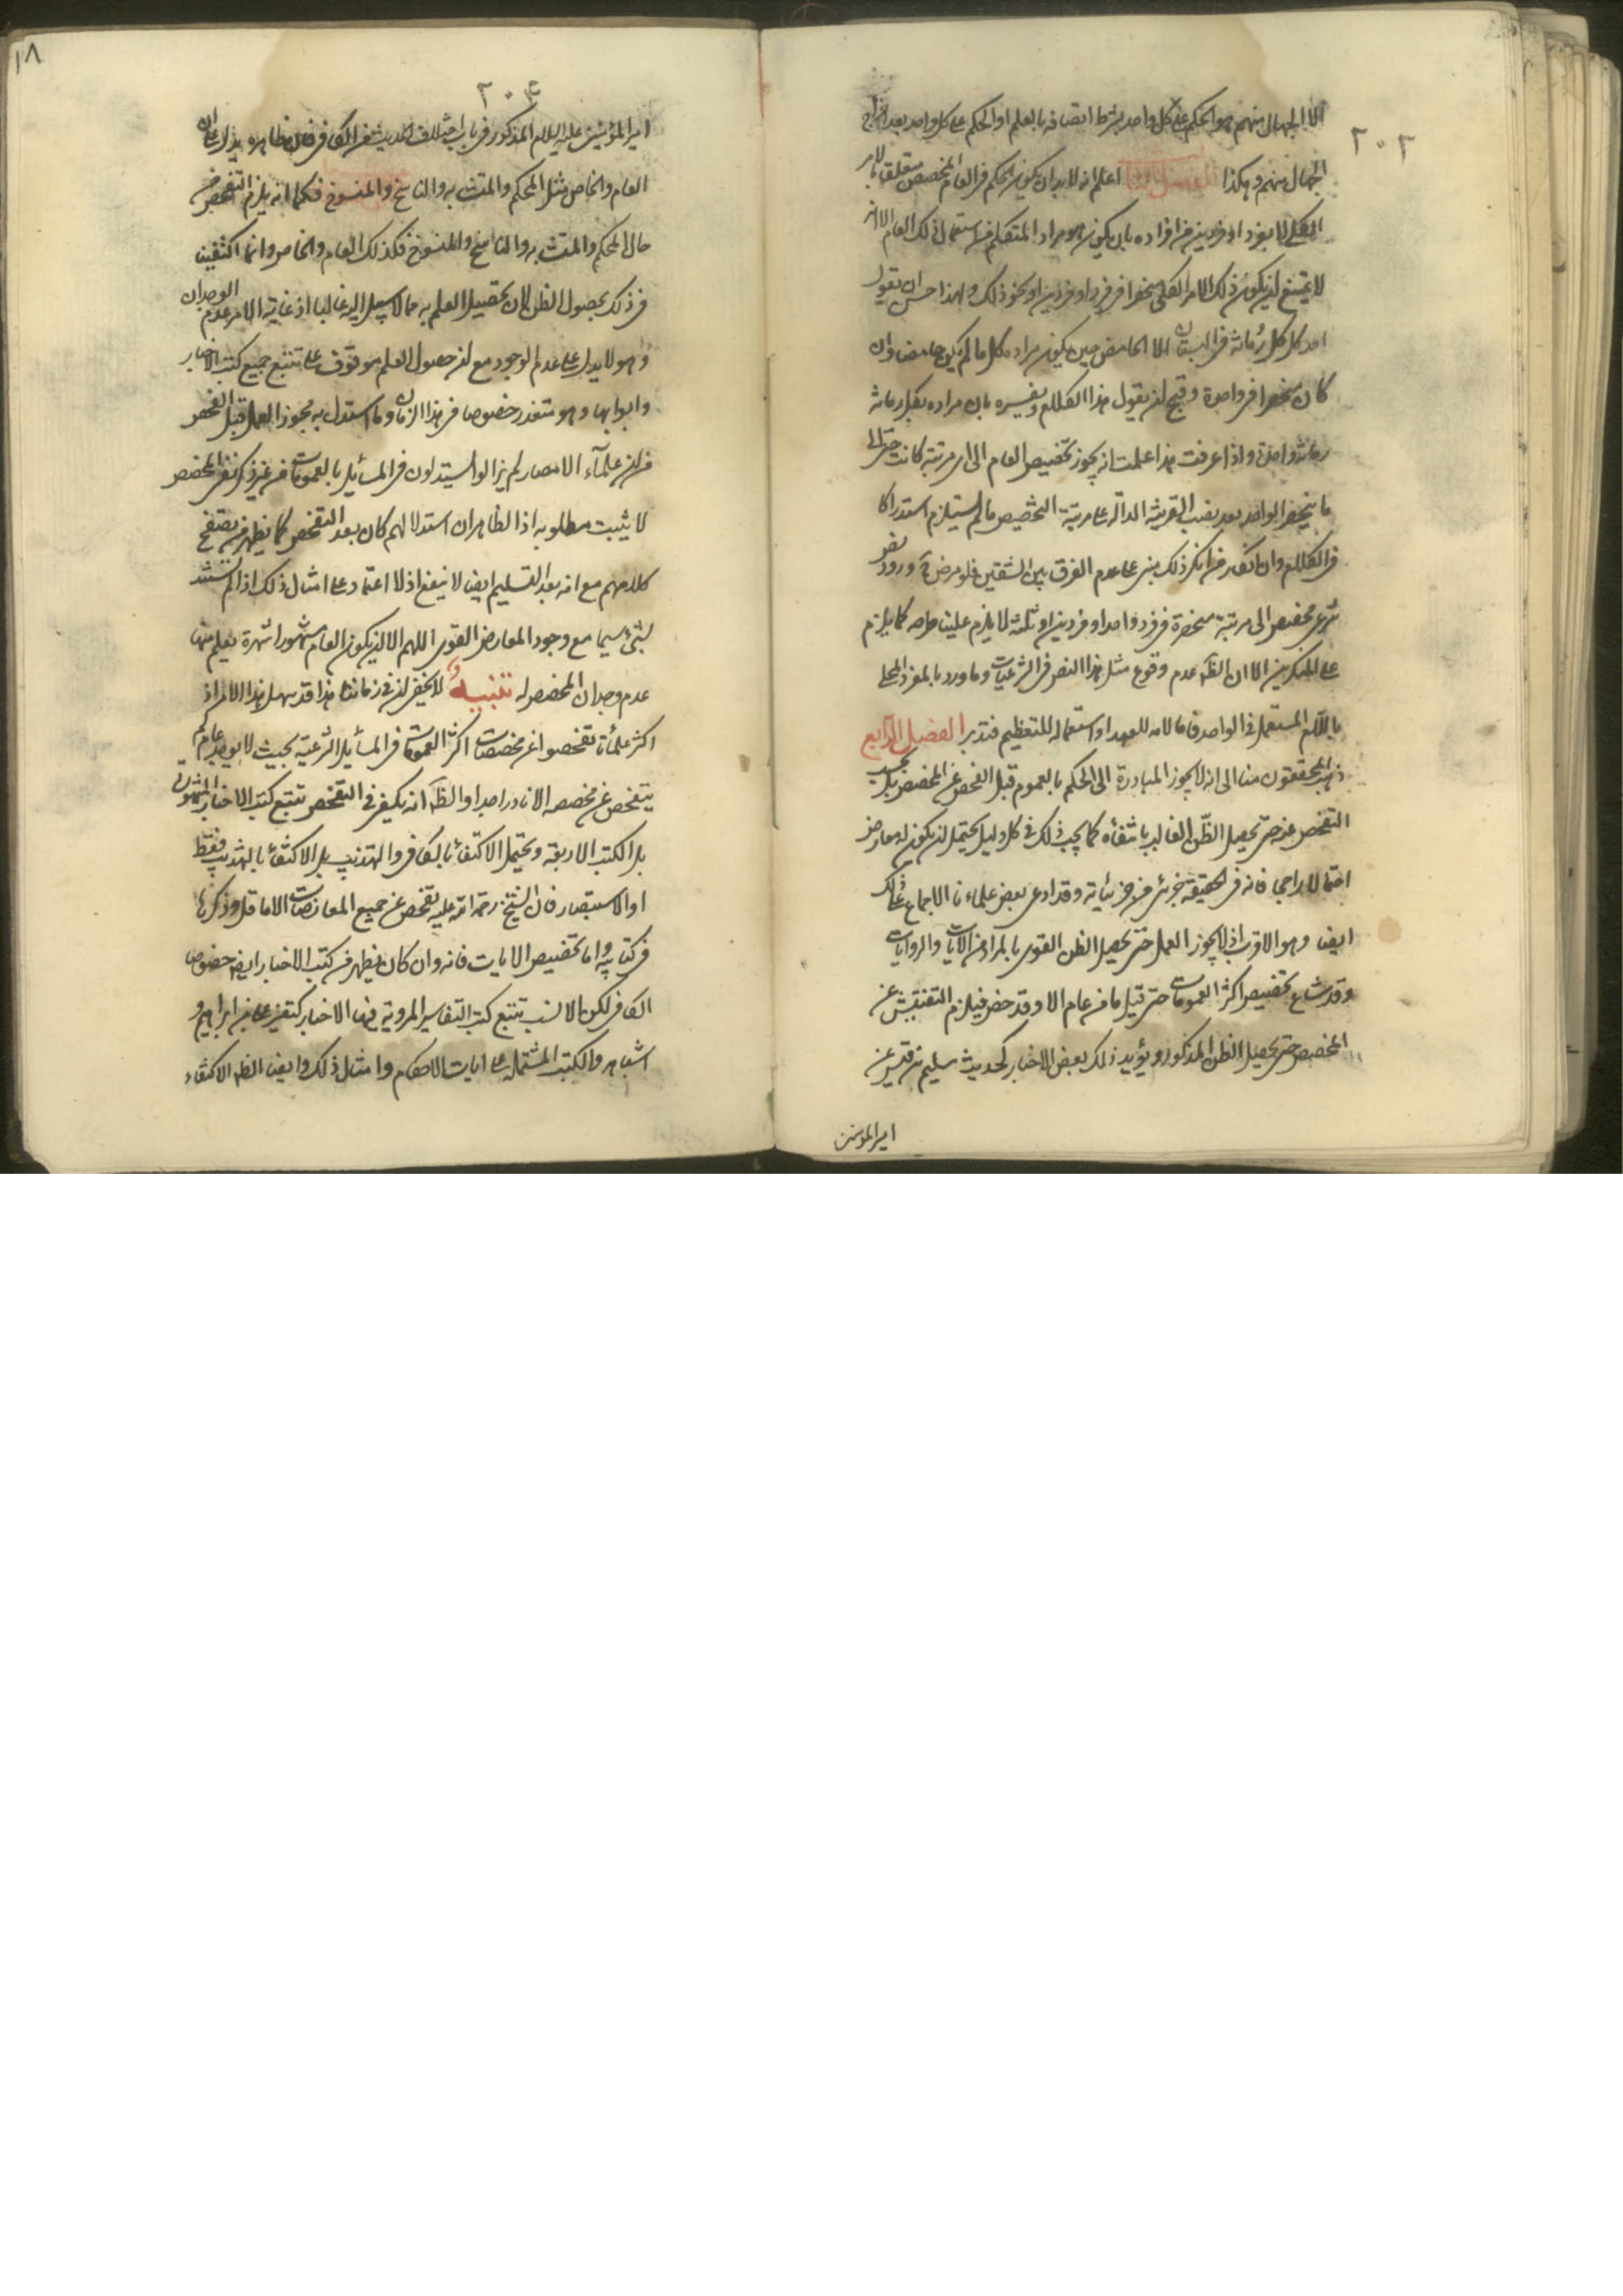 ٢٠٣
الا الجهال منهم هو الحكم على كل واحد بشرط اتصافه بالعلم او الحكم على كل واحد بعد اخراج
الجهال منهم وهكذا الفصل الثالث اعلم انه لا بد ان يكون الحكم في العام المخصص متعلقا بالامر
الكلي لا بفرد او فردين من افراده بان يكون هو مراد المتكلم من استعمال ذلك العام الا انه
لا يمتنع ان يكون ذلك الامر الكلي منحصرا في فرد او فردين او نحو ذلك ولهذا حسن ان يقول
احد كل كل رمانة في البستان الا الحامض حين يكون مراده كل ما لم يكن حامضا وان
كان منحصرا في واحدة وقبح ان يقول هذا الكلام ويفسره بان مراده بكل رمانة
رمانة واحدة واذا عرفت هذا علمت انه يجوز تخصيص العام الى اي مرتبة كانت حتى الى
ما ينحصر الواحد بعد نصب القرينة الدالة على مرتبة التخصيص ما لم يستلزم استدراكا
في الكلام وان انكر من انكر ذلك مبني على عدم الفرق بين الشقين فلو فرض ورود نص
شرعي مخصص الى مرتبة منحصرة في فرد واحد او فردين او ثلثة لا يلزم علينا طرحه كما يلزم
على المنكرين الا ان الظ عدم وقوع مثل هذا النص في الشرعيات وما ورد بالمفرد المحلى
باللام المستعمل في الواحد فاما لامه للعهد او استعماله للتعظيم فتدبر الفصل الرابع
ذهب المحققون منا الى انه لا يجوز المبادرة الى الحكم بالعموم قبل الفحص عن المخصص بل يجب
التفحص عنه حتى يحصل الظن الغالب بانتفائه كما يجب ذلك في كل دليل يحتمل ان يكون له معارض
احتمالا راجحا فانه في الحقيقة جزئي من جزئياته وقد ادعى بعض علماءنا الاجماع على ذلك
ايضا وهو الاقرب اذ لا يجوز العمل حتى يحصل الظن القوي بالمراد من الآيات والروايات
وقد شاع تخصيص اكثر العمومات حتى قيل ما من عام الا وقد خص فيلزم التفتيش عن
المخصص حتى يحصل الظن المذكور ويؤيد ذلك بعض الاخبار كحديث سليم بن قيس عن
امير المؤمنين
١٨
٢٠٤
امير المؤمنين عليه السلام المذكور في باب اختلاف الحديث من الكافي فان ظاهره يدل على ان
العام والخاص مثل المحكم والمتشابه والناسخ والمنسوخ فكما انه يلزم التفحص عن
حال المحكم والمتشابه والناسخ والمنسوخ فكذلك العام والخاص وانما اكتفينا
في ذلك بحصول الظن لان تحصيل العلم به مما لا سبيل اليه غالبا اذ غاية الامر عدم الوجدان
وهو لا يدل على عدم الوجود مع ان حصول العلم موقوف على تتبع جميع كتب الاخبار
وابوابها وهو متعذر خصوصا في هذا الزمان وما استدل به مجوز العمل قبل الفحص
من ان علماء الامصار لم يزالوا يستدلون في المسائل بالعمومات من غير ذكر نفي المخصص
لا يثبت مطلوبه اذ الظاهر ان استدلالهم كان بعد التفحص كما يظهر من تصفح
كلامهم مع انه بعد التسليم ايضا لا ينفع اذ لا اعتماد على امثال ذلك اذا لم يستند
بشئ سيما مع وجود المعارض القوي اللهم الا ان يكون العام مشهورا شهرة يعلم منها
عدم وجدان المخصص له تنبيه لا يخفى ان في زماننا هذا قد سهل هذا الامر اذ
اكثر علمائنا تفحصوا عن مخصصات اكثر العمومات في المسائل الشرعية بحيث لا يوجد عام لم
يتفحص عن مخصصه الا نادرا جدا والظ انه يكفي في التفحص تتبع كتب الاخبار المشهورة
بل الكتب الاربعة ويحتمل الاكتفاء بالكافي والتهذيب بل الاكتفاء بالتهذيب فقط
او الاستبصار فان الشيخ رحمة الله عليه تفحص عن جميع المعارضات الا ما قل وذكرها
في كتابيه واما تخصيص الايات فانه وان كان يظهر من كتب الاخبار ايضا خصوصا
الكافي لكن الانسب تتبع كتب التفاسير المروية فيها الاخبار كتفسير علي بن ابراهيم و
اشباهه والكتب المشتملة على ايات الاحكام وامثال ذلك وايضا الظ الاكتفاء